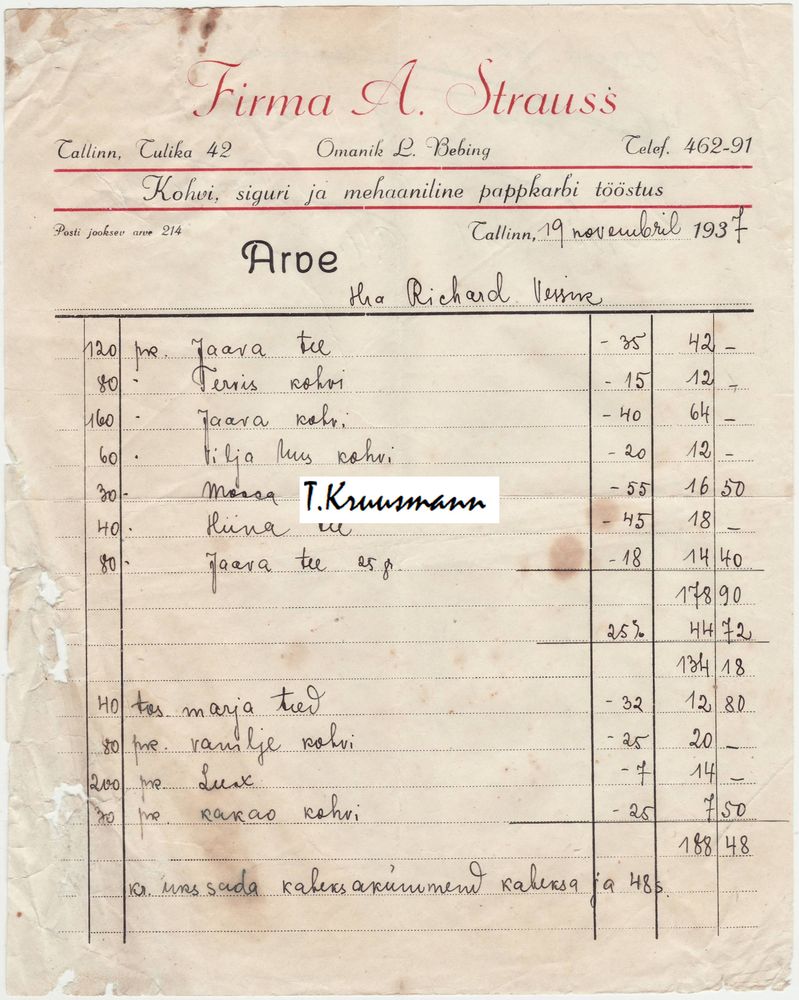 Firma A. Strauss
Tallinn, Tulika 42 Omanik L. Bebing Telef. 462-91
Kohvi, siguri ja mehaaniline pappkarbi tööstus
Posti jooksev arve 214 Tallinn, 19 novembril 1937
Arve
Hra Richard
120 pk. Jaava tee - 35 42 -
80 " Tervis kohvi - 15 12 -
160 " Jaava kohvi - 40 64 -
60 " Vilja Uus kohvi - 20 12 -
30 " Mocca - 55 16 50
T.Kruusmann
40 " Hiina tee - 45 18 -
80 " Jaava tee 25 gr. - 18 14 40
178 90
25% 44 72
134 18
40 tos. marja teed - 32 12 80
80 pk. vanilje kohvi - 25 20 -
200 pk Lux - 7 14 -
30 pk. kakao kohvi - 25 7 50
188 48
kr. üks sada kaheksakümmend kaheksa ja 48 s.